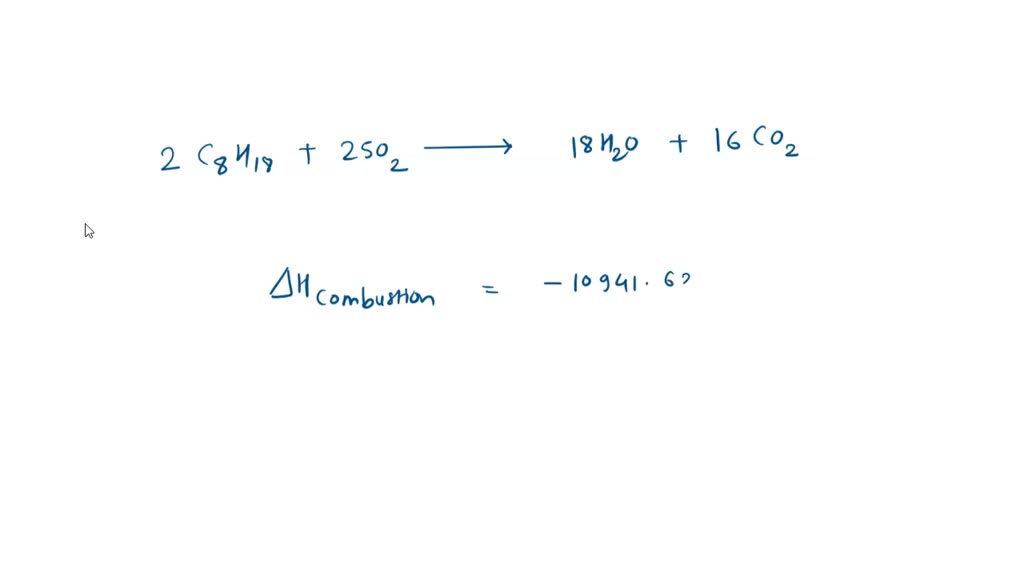 2 C₈H₁₈ + 25O₂ ⟶ 18H₂O + 16CO₂
ΔH combustion = -10941.6